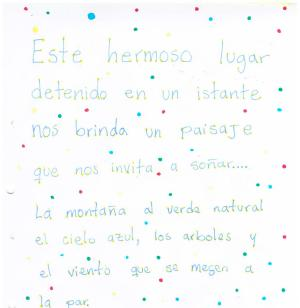 Este hermoso lugar
detenido en un istante
nos brinda un paisaje
que nos invita a soñar....
La montaña al verde natural
el cielo azul, los arboles y
el viento que se mesen a
la par.